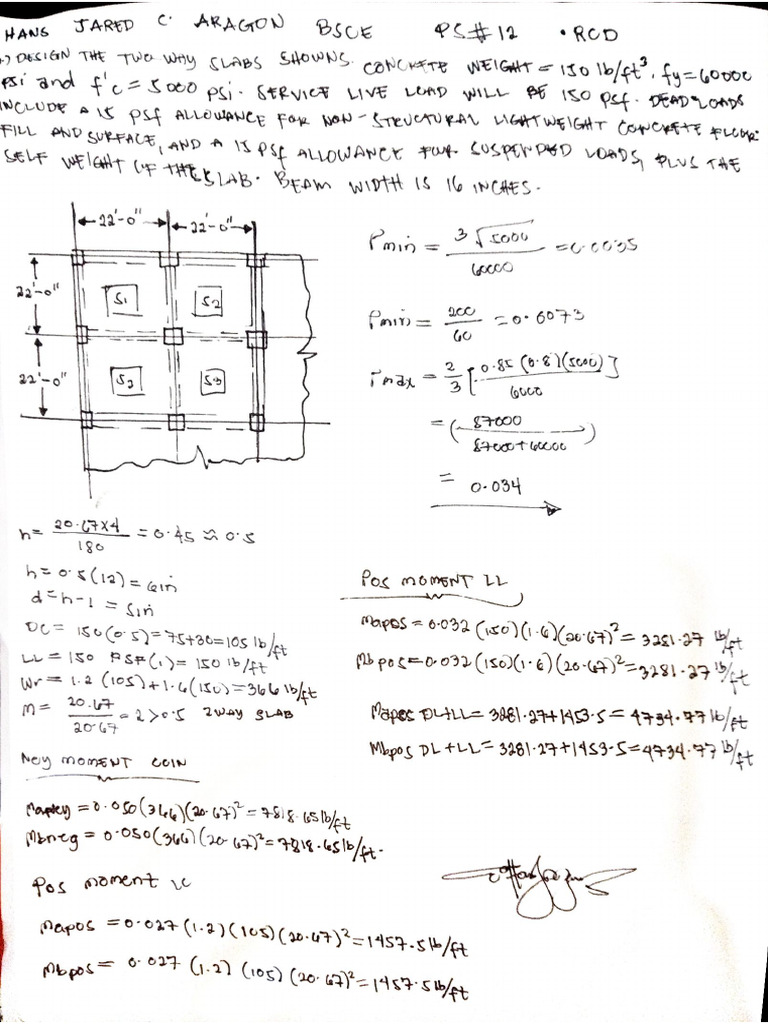 HANS JARED C. ARAGON BSCE PS#12 • RCD
1.) DESIGN THE TWO WAY SLABS SHOWNS. CONCRETE WEIGHT = 150 lb/ft³, fy = 60000
psi and f'c = 5000 psi. SERVICE LIVE LOAD WILL BE 150 psf. DEAD LOADS
INCLUDE A 15 psf ALLOWANCE FOR NON-STRUCTURAL LIGHTWEIGHT CONCRETE FLOOR
FILL AND SURFACE, AND A 15 psf ALLOWANCE FOR SUSPENDED LOADS, PLUS THE
SELF WEIGHT OF THE SLAB. BEAM WIDTH IS 16 INCHES.
22'-0" 22'-0"
22'-0" S1 S2
22'-0" S2 S3
Pmin = 3√5000 / 60000 = 0.0035
Pmin = 200 / 60 = 0.0073
Pmax = 2/3 [0.85 (0.8)(5000) / 6000]
= (87000 / 87000+60000)
= 0.034
h = 20.67x4 / 180 = 0.45 ≈ 0.5
h = 0.5(12) = 6in
d = h-1 = 5in
DL = 150(0.5) = 75+30 = 105 lb/ft
LL = 150 PSF(1) = 150 lb/ft
Wr = 1.2 (105) + 1.6(150) = 366 lb/ft
m = 20.67 / 20.67 = 2 > 0.5 2WAY SLAB
Neg MOMENT COIN
Maneg = 0.050(366)(20.67)² = 7818.65 lb/ft
Mbneg = 0.050(366)(20.67)² = 7818.65 lb/ft.
Pos moment
Mapos = 0.027 (1.2)(105)(20.67)² = 1457.5 lb/ft
Mbpos = 0.027 (1.2) (105) (20.67)² = 1457.5 lb/ft
POS MOMENT LL
Mapos = 0.032 (150)(1.6)(20.67)² = 3281.27 lb/ft
Mb pos = 0.032(150)(1.6)(20.67)² = 3281.27 lb/ft
Mapos DL+LL = 3281.27+1453.5 = 4734.77 lb/ft
Mbpos DL+LL = 3281.27+1453.5 = 4734.77 lb/ft